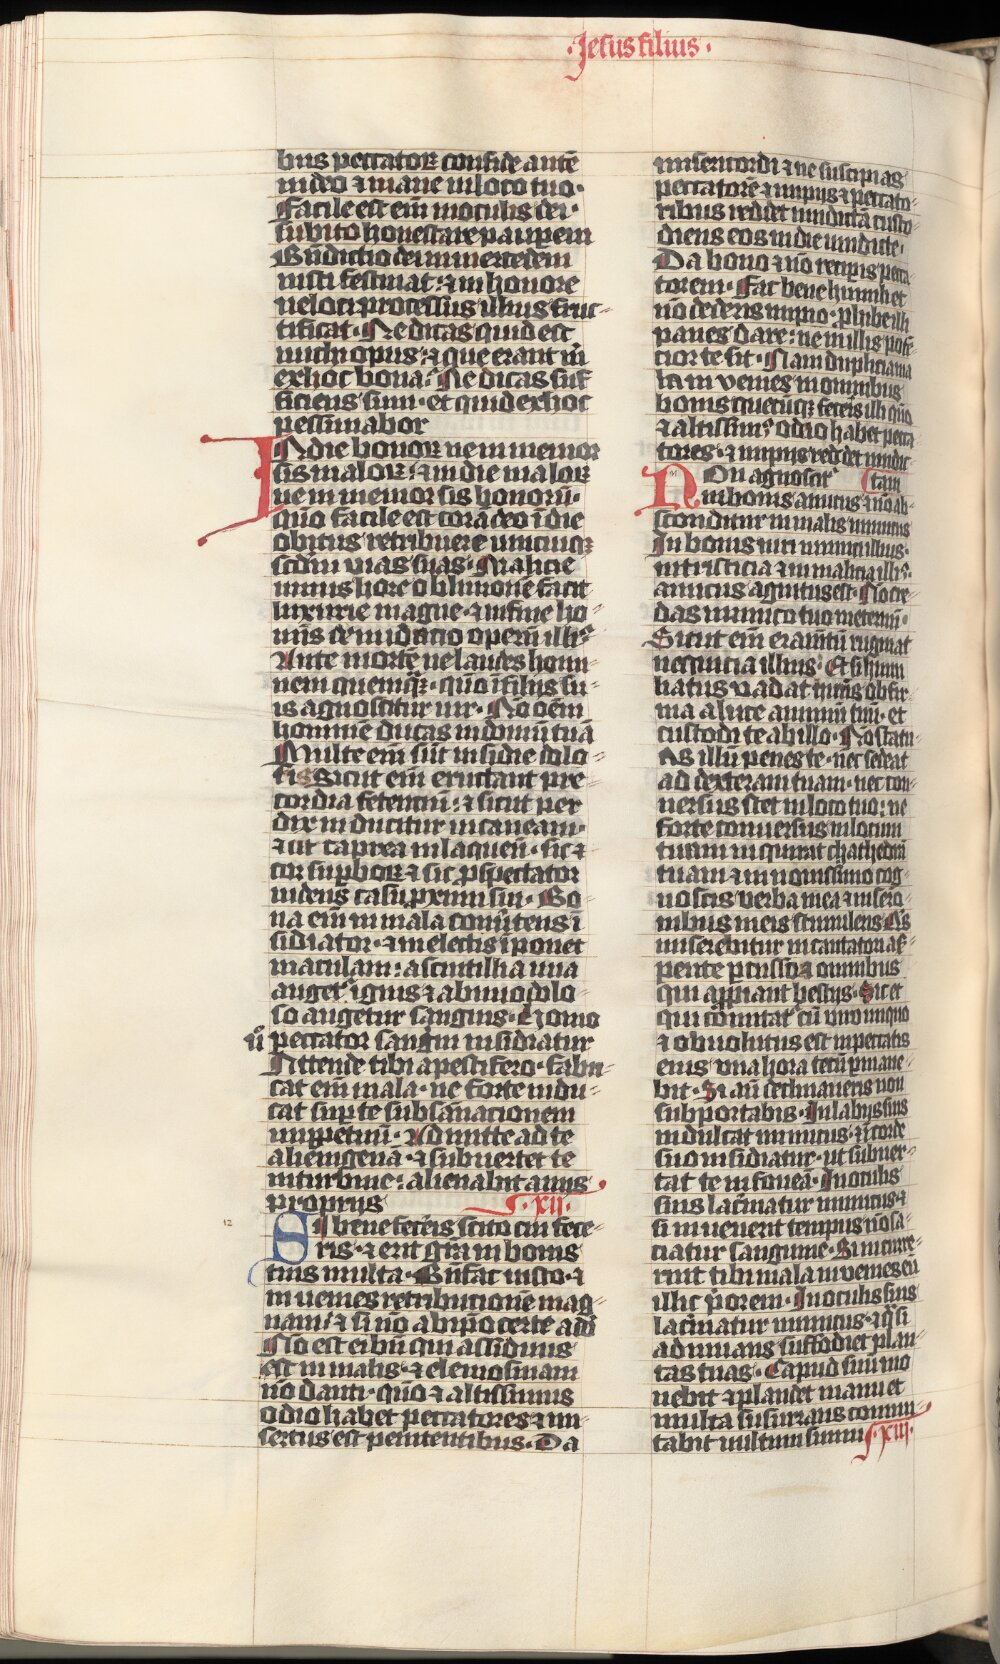 ·Jesus filius·
bus peccatoꝝ confide autē
in deo ⁊ mane in loco tuo·
Facile est em̄ in oculis dei·
subito honestare pauꝑem
Bn̄dictio dei in mercedem
iusti festinat· ⁊ in honore
veloci processus illius fruc-
tificat· Ne dicas quid est
michi opus· ⁊ que erant m̄
ex hoc bona· Ne dicas suf
ficiens sum· et quid ex hoc
pessimabor
In die bonoꝝ ne in memor
sis maloꝝ· ⁊ in die maloꝝ
ne in memor sis bonoꝝū·
qm̄o facile est corā deo ī die
obitus retribuere unicuiqꝫ
scd̄m vias suas· Malicie
unius hore oblivionē facit
luxurie magne· ⁊ in fine ho-
mīs denudacio operū illiꝰ
Ante mortē ne laudes homi-
nem quemqꝫ· qm̄o ī filiis su-
is agnoscitur vir· Nō oēm
hominē ducas in domū tuā
Multe em̄ sūt insidie dolo-
sis Sicut em̄ eructant pre-
cordia fetenciū· ⁊ sicut per
dix inducitur in caveam·
⁊ ut caprea in laqueū· sic ⁊
cor suꝑboꝝ ⁊ sic ꝓspectator
videns casū ꝓximi sui· Bo-
na em̄ in mala convertens ī
sidiator· ⁊ in electis īponet
maculam· a scintilla una
augetᷣ ignis ⁊ ab uno dolo-
so augetur sangvis· Homo
vͦ peccator sangⁱni insidiatur
Attende tibi a pestifero· fabri-
cat em̄ mala· ne forte indu-
cat suꝑ te subsannacionem
in ꝑpetuū· Admitte ad te
alienigenā· ⁊ subvertet te
in turbine· ⁊ alienabit a viis
propriis ·XII·
12
Si bene feceris scito cui fece-
ris· ⁊ erit gr̄a in bonis
tuis multa· Bn̄fac iusto· ⁊
invenies retribucionē mag-
nam· ⁊ si nō ab ipo certe a dō
Nō est ei bn̄ qui assiduus
est in malis· ⁊ elemosinam
nō danti· qm̄o ⁊ altissimus
odio habet peccatores ⁊ mi-
sertus est penitentibus· Da
misericordi ⁊ ne suscipias
peccatorē ⁊ impiis ⁊ peccato-
ribus reddet vindictā custo-
diens eos in die vindicte·
Da bono ⁊ nō recipis pecca-
torem· Fac bene humili et
nō dederis impio· ꝓhibe illi
panes dare· ne in illis potē-
cior te sit· Nam duplicia ma
la invenies in omnibus
bonis quecūqꝫ feceris illi qm̄o
⁊ altissimꝰ odio habet pecca
tores· ⁊ impiis reddet vindic
Non agnoscitᷣ tam
in bonis amicus ⁊ nō ab-
sconditur in malis inimicus
In bonis viri inimici illius·
in tristicia ⁊ in malicia illiꝰ·
amicus agnitus est· Nō cre-
das inimico tuo in eternū·
Sicut em̄ eramentū eruginat
nequicia illius· Et si humi
liatus vadat curvus obfir-
ma a luce animū tuū· et
custodi te ab illo· Nō statu-
as illū penes te· nec sedeat
ad dexteram tuam· nec con-
versus stet in loco tuo· ne
forte conversus in locum
tuum inquirat chathedrā
tuam ⁊ in novissimo cog-
noscis verba mea ⁊ in sermo-
nibus meis stimuleris Qis
miserebitur incantatori a ser-
pente ꝑcusso ⁊ omnibus
qui appiant bestiis· Sic et
qui cōmitatᷣ cū viro iniquo
⁊ obvolutus est in peccatis
eius una hora tecū ꝑmane-
bit· Si aūt declinaveris non
subportabis· In labiis suis
indulcat inimicus· ⁊ ī corde
suo insidiatur· ut subver-
tat te in foveā· In oculis
suis lac̄matur inimicus· ⁊
si invenerit tempus nō sa-
ciatur sangvine· Si incurre-
rint tibi mala invenies eū
illic pͥorem· In oculis suis
lac̄matur inimicus· ⁊ qᷣsi
adiuvans suffodiet plan-
tas tuas· Capud suū mo
vebit ⁊ plaudet manu et
multa susurrans commu-
tabit vultum suum ·XIII·